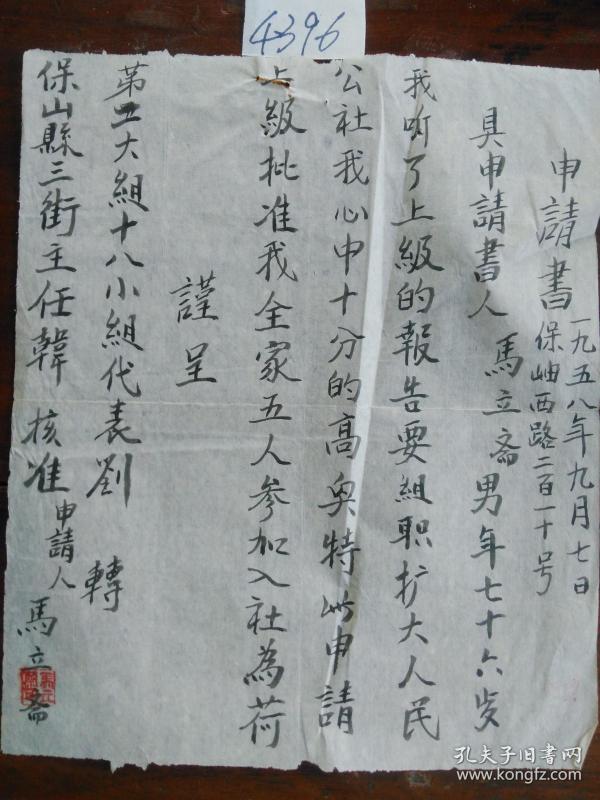 4396
申請書
一九五八年九月七日
保岫西路二百一十号
具申請書人馬立斋男年七十六岁
我听了上級的報告要組职扩大人民
公社我心中十分的高兴特此申請
上級批准我全家五人参加入社為荷
謹呈
第五大組十八小組代表劉 轉
保山縣三街主任韓 核准
申請人
馬立斋
孔夫子旧书网
www.kongfz.com